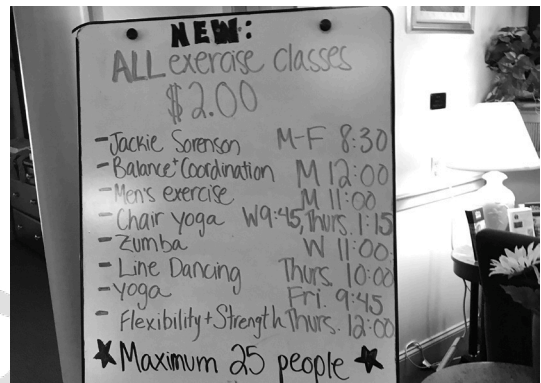 NEW:
ALL exercise classes
$2.00
- Jackie Sorenson M-F 8:30
- Balance+Coordination M 12:00
- Men's exercise M 11:00
- Chair yoga W9:45, Thurs. 1:15
- Zumba W 11:00
- Line Dancing Thurs. 10:00
- yoga Fri. 9:45
- Flexibility+Strength Thurs. 12:00
★ Maximum 25 people ★